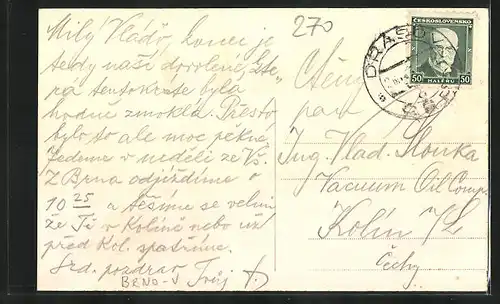 270
Milý Vláďo, konec je
tedy naší dovolené, kte-
rá tentokráte byla
hodně zmoklá. Přesto
bylo to ale moc pekné.
Jedeme v neděli ze Vš.
Z Brna odjíždíme o
10 25 a těšíme se velmi
že Tě v Kolíně nebo už
před Kol. spatříme.
Srd. pozdrav Tvůj
BRNO-V
ČESKOSLOVENSKO
50 HALÉŘŮ 50
DRÁSO
Ctěný
pan
Ing. Vlad. Slouka
Vacuum Oil Comp.
Kolín n/L
Čechy